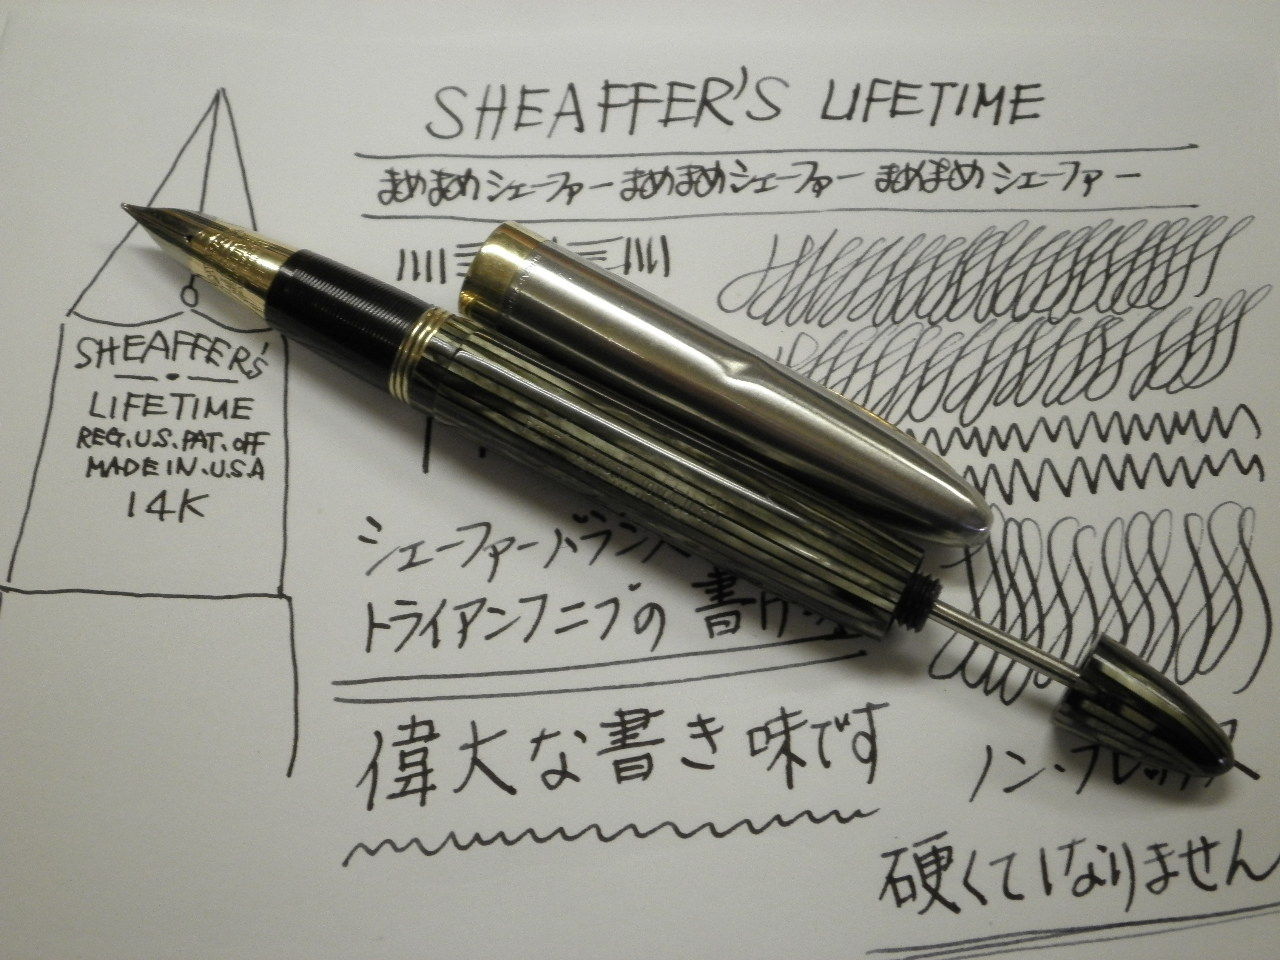 SHEAFFER'S LIFETIME
まめまめシェーファー まめまめシェーファー まめまめシェーファー
SHEAFFER'S
LIFETIME
REG.U.S.PAT.OFF
MADE IN.U.S.A
14K
シェーファーバラン
トライアンフニブの書
偉大な書き味です
ノン・フレックス
硬くてしなりません